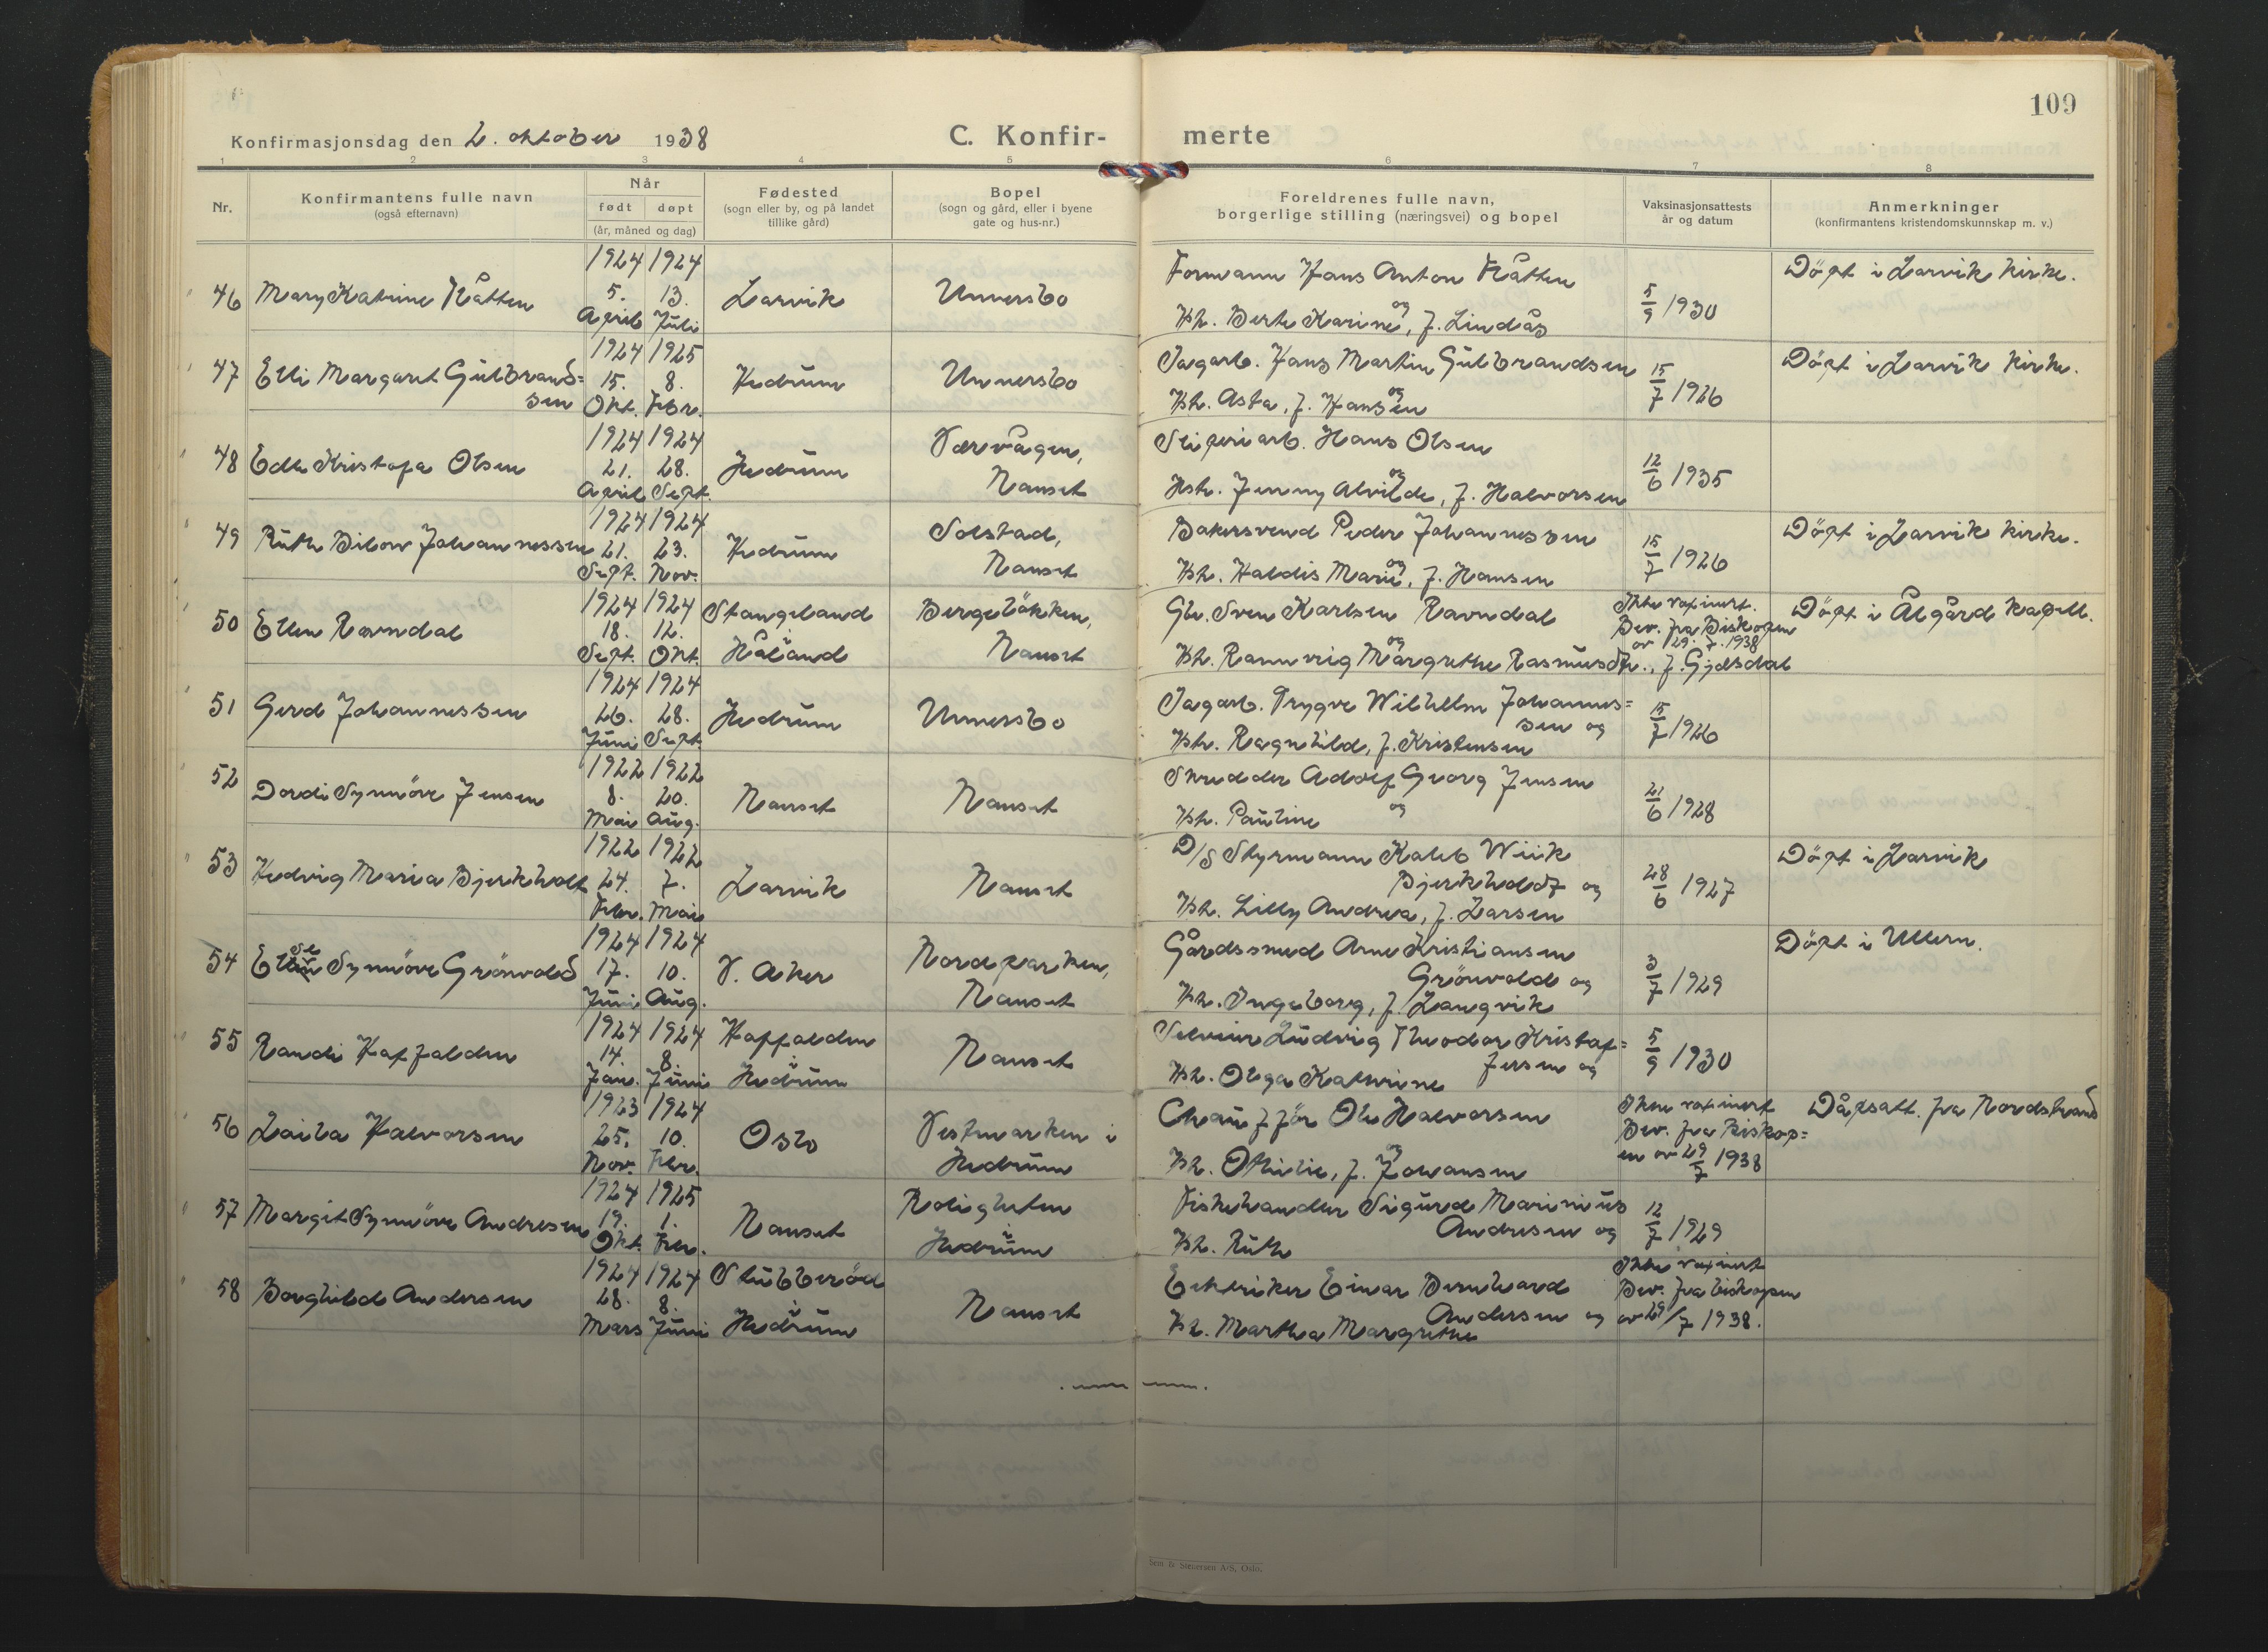 109
Konfirmasjonsdag den 2. oktober 1938
C. Konfir- merte
1 2 3 4 5 6 7 8
Nr.
Konfirmantens fulle navn
(også efternavn)
Når
født døpt
(år, måned og dag)
Fødested
(sogn eller by, og på landet
tillike gård)
Bopel
(sogn og gård, eller i byene
gate og hus-nr.)
Foreldrenes fulle navn,
borgerlige stilling (næringsvei) og bopel
Vaksinasjonsattests
år og datum
Anmerkninger
(konfirmantens kristendomskunnskap m. v.)
1924 1924 Formann Hans Anton Råtten Döpt i Larvik kirke.
46 Mary Katrine Råtten 5. 13. Larvik Unnersbo og 5/9 1930
April Juli H. Berthe Karine, f. Lindås
1924 1925 Sagarb. Hans Martin Gulbrandsen Döpt i Larvik kirke.
47 Elli Margaret Gulbrand= 15. 8. Hedrum Unnersbo og 15/7 1926
sen Okt. Febr. H. Asta, f. Hansen
1924 1924 Værvågen, Sliperiarb. Hans Olsen
48 Edle Kristofa Olsen 21. 28. Hedrum og 12/6 1935
April Sept. Nanset Hstr. Jenny Alvilde, f. Halvorsen
1924 1924 Solstad, Bakersvend Peder Johannessen Döpt i Larvik kirke.
49 Ruth Bilow Johannessen 21. 23. Hedrum og 15/7 1926
Sept. Nov. Nanset H. Haldis Marie, f. Hansen
1924 1924 Stangeland Bergelökken, Gbr. Sven Karlsen Ravndal Ikke vaxinert. Döpt i Ålgård kapell.
50 Ellen Ravndal 18. 12. i og Bev. fra Biskopen
av 29. 7. 1938
Sept. Okt. Håland Nanset H. Rannveig Margrethe Rasmusdtr., f. Gjesdal
1924 1924 Sagarb. Trygve Wilhelm Johannes=
51 Gerd Johannessen 26. 28. Hedrum Unnersbo sen og 15/7 1926
Juni Sept. H. Ragnhild, f. Kristensen
1922 1922 Skredder Adolf Georg Jensen
52 Dordi Synnöve Jensen 8. 20. Nanset Nanset og 21/6 1928
Mai Aug. H. Pauline
1922 1922 D/S Styrmann Kaleb Wiik Döpt i Larvik
53 Hedvig Maria Bjerkholt 24. 7. Larvik Nanset Bjerkholdt og 28/6 1927
Febr. Mai H. Lilly Andrea, f. Larsen
1924 1924 Nordparken, Gårdssmed Arne Kristiansen Döpt i Ullern.
54 Synnöve Grönvold 17. 10. V. Aker Grönvold og 3/7 1929
Juni Aug. Nanset H. Ingeborg, f. Langvik
1924 1924 Haffalden Ludvig Theodor Kristof=
55 Randi Haffalden 14. 8. i Nanset fersen og 5/9 1930
Jan. Juni Hedrum H. Olga Kathrine
1923 1924 Vestmarken i Chaufför Ole Halvorsen Ikke vaxinert Dåpsatt. fra Nordstrand
56 Laila Halvorsen 25. 10. Oslo og Bev. fra biskop=
Nov. Febr. Hedrum H. Othilie, f. Johansen en av 29/7 1938
1924 1925 Roligheten Fiskehandler Sigurd Marinius
57 Margit Synnöve Andresen 19. 1. Nanset i Andresen og 12/7 1929
Okt. Febr. Hedrum H. Ruth
1924 1924 Stubberöd Elektriker Einar Bernhard Ikke vaxinert
58 Borghild Andersen 28. 8. i Nanset Andersen og Bev. fra biskopen
Mars Juni Hedrum H. Martha Margrethe av 29/7 1938.
Sem & Stenersen A/S, Oslo.